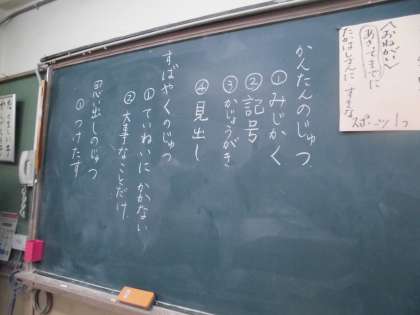 かんたんのじゅつ
①みじかく
②記号
③かじょうがき
④見出し
すばやくのじゅつ
①ていねいにかかない
②大事なことだけ
思い出しのじゅつ
①つけたす
〈おねがい〉
あさってまでに